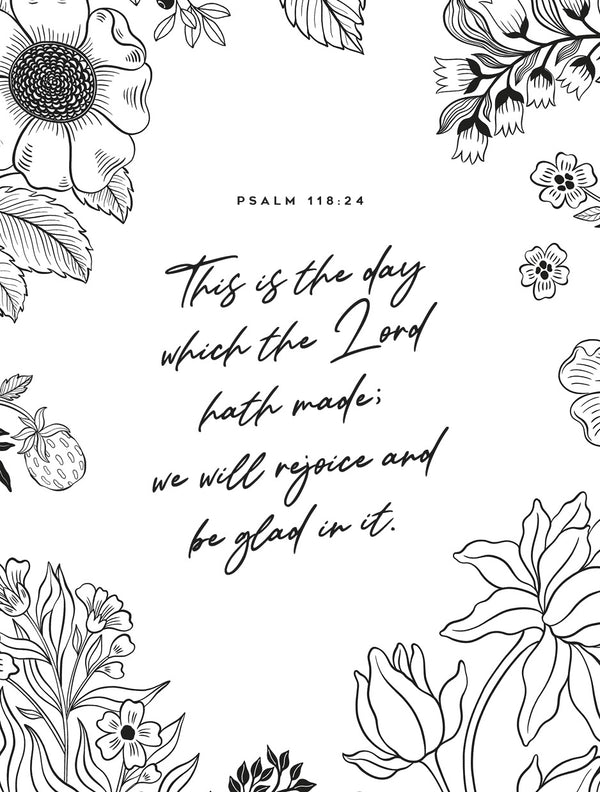 PSALM 118:24
This is the day
which the Lord
hath made;
we will rejoice and
be glad in it.